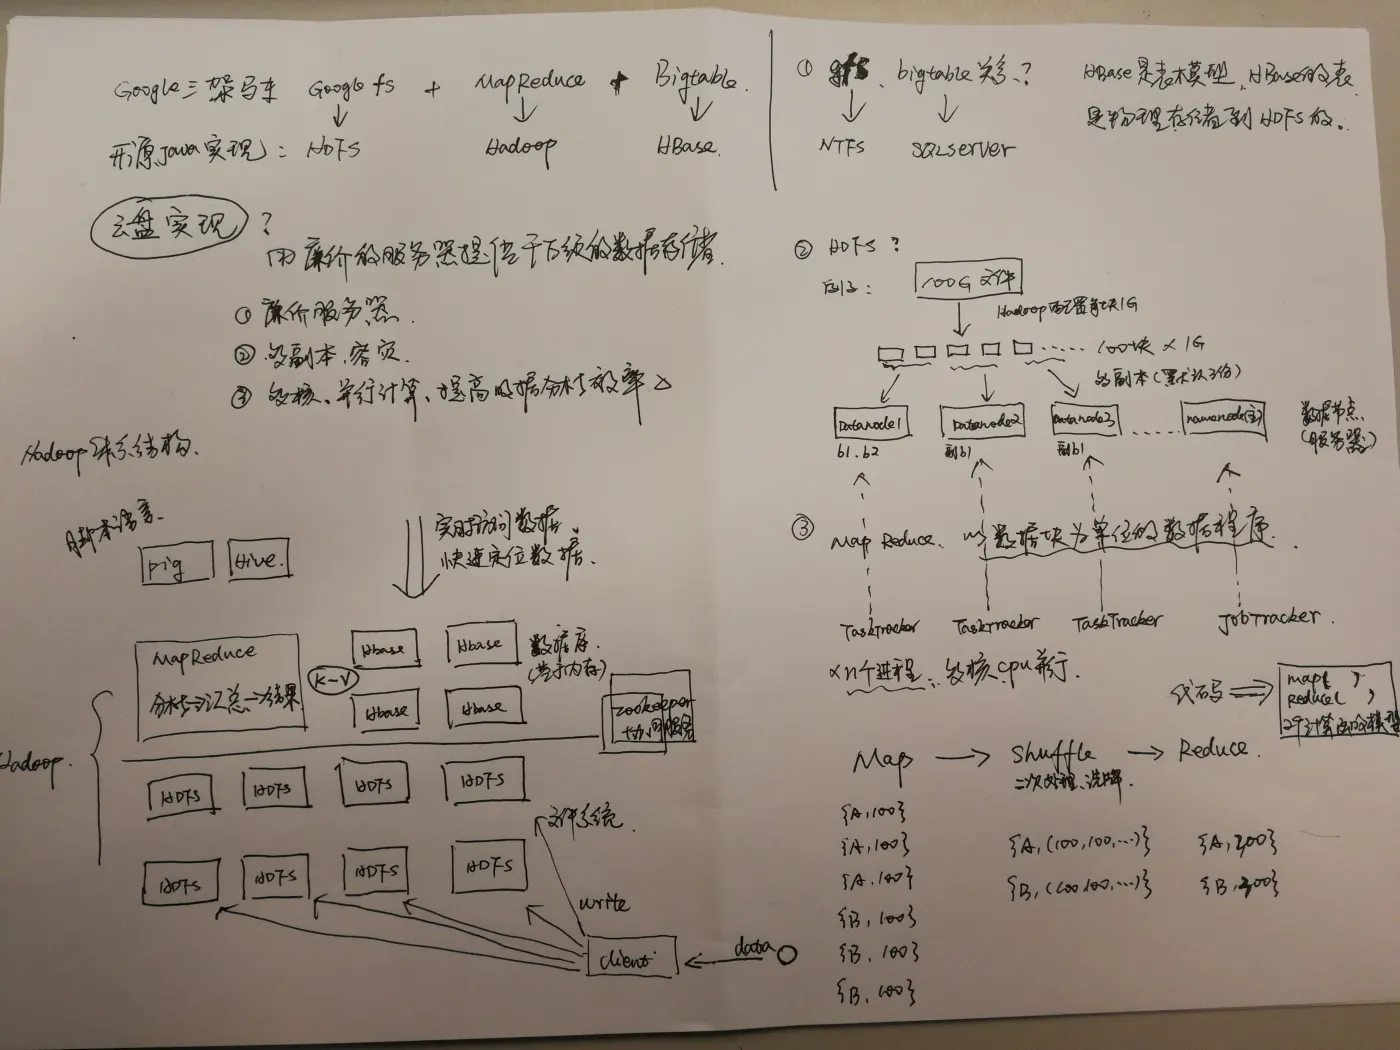 Google三架马车 Google fs + MapReduce + Bigtable.
开源Java实现: HDFS Hadoop HBase.
云盘实现?
用廉价的服务器提供千万级的数据存储.
① 廉价服务器.
② 多副本、容灾.
③ 多核、并行计算、提高数据分析效率
Hadoop体系结构.
脚本语言.
pig Hive.
实时访问数据.
快速定位数据.
MapReduce
分析→汇总→结果
K-V
Hbase Hbase
Hbase Hbase
数据库.
(基于内存)
zookeeper
协同服务
Hadoop.
HDFS HDFS HDFS HDFS
文件系统.
HDFS HDFS HDFS HDFS
write
client
data
① gfs、bigtable关系?
NTFS SQLserver
HBase是表模型,HBase的表
是物理存储到HDFS的。
② HDFS?
例子: 100G文件
Hadoop配置每块1G
...... 100块 × 1G
多副本(默认3份)
Datanode1 Datanode2 Datanode3 ...... namenode(主)
数据节点
(服务器)
b1.b2 副b1 副b1
③ Map Reduce. 以数据块为单位的数据程序.
TaskTracker TaskTracker TaskTracker JobTracker.
×n个进程、多核cpu并行.
代码
map( )
Reduce( )
Map → Shuffle → Reduce.
二次处理、洗牌.
{A,100}
{A,100} {A,(100,100,...)} {A,300}
{A,100} {B,(100,100,...)} {B,300}
{B,100}
{B,100}
{B,100}